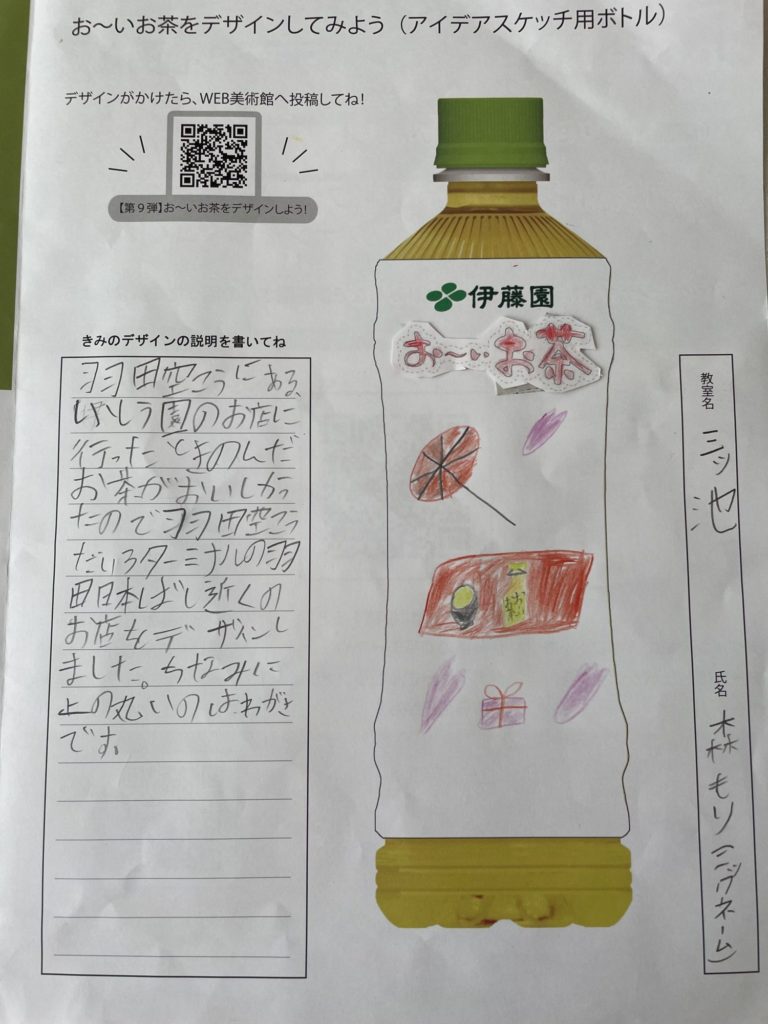 お〜いお茶をデザインしてみよう（アイデアスケッチ用ボトル）
デザインがかけたら、WEB美術館へ投稿してね！
【第９弾】お〜いお茶をデザインしよう！
伊藤園
お〜いお茶
きみのデザインの説明を書いてね
羽田空こうにある、
いとう園のお店に
行ったときのんだ
お茶がおいしかっ
たので羽田空こう
だい3ターミナルの羽
田日本ばし近くの
お店をデザインし
ました。ちなみに
上の丸いのはわがさ
です。
教室名
三ッ池
氏名
森もり(ニックネーム)